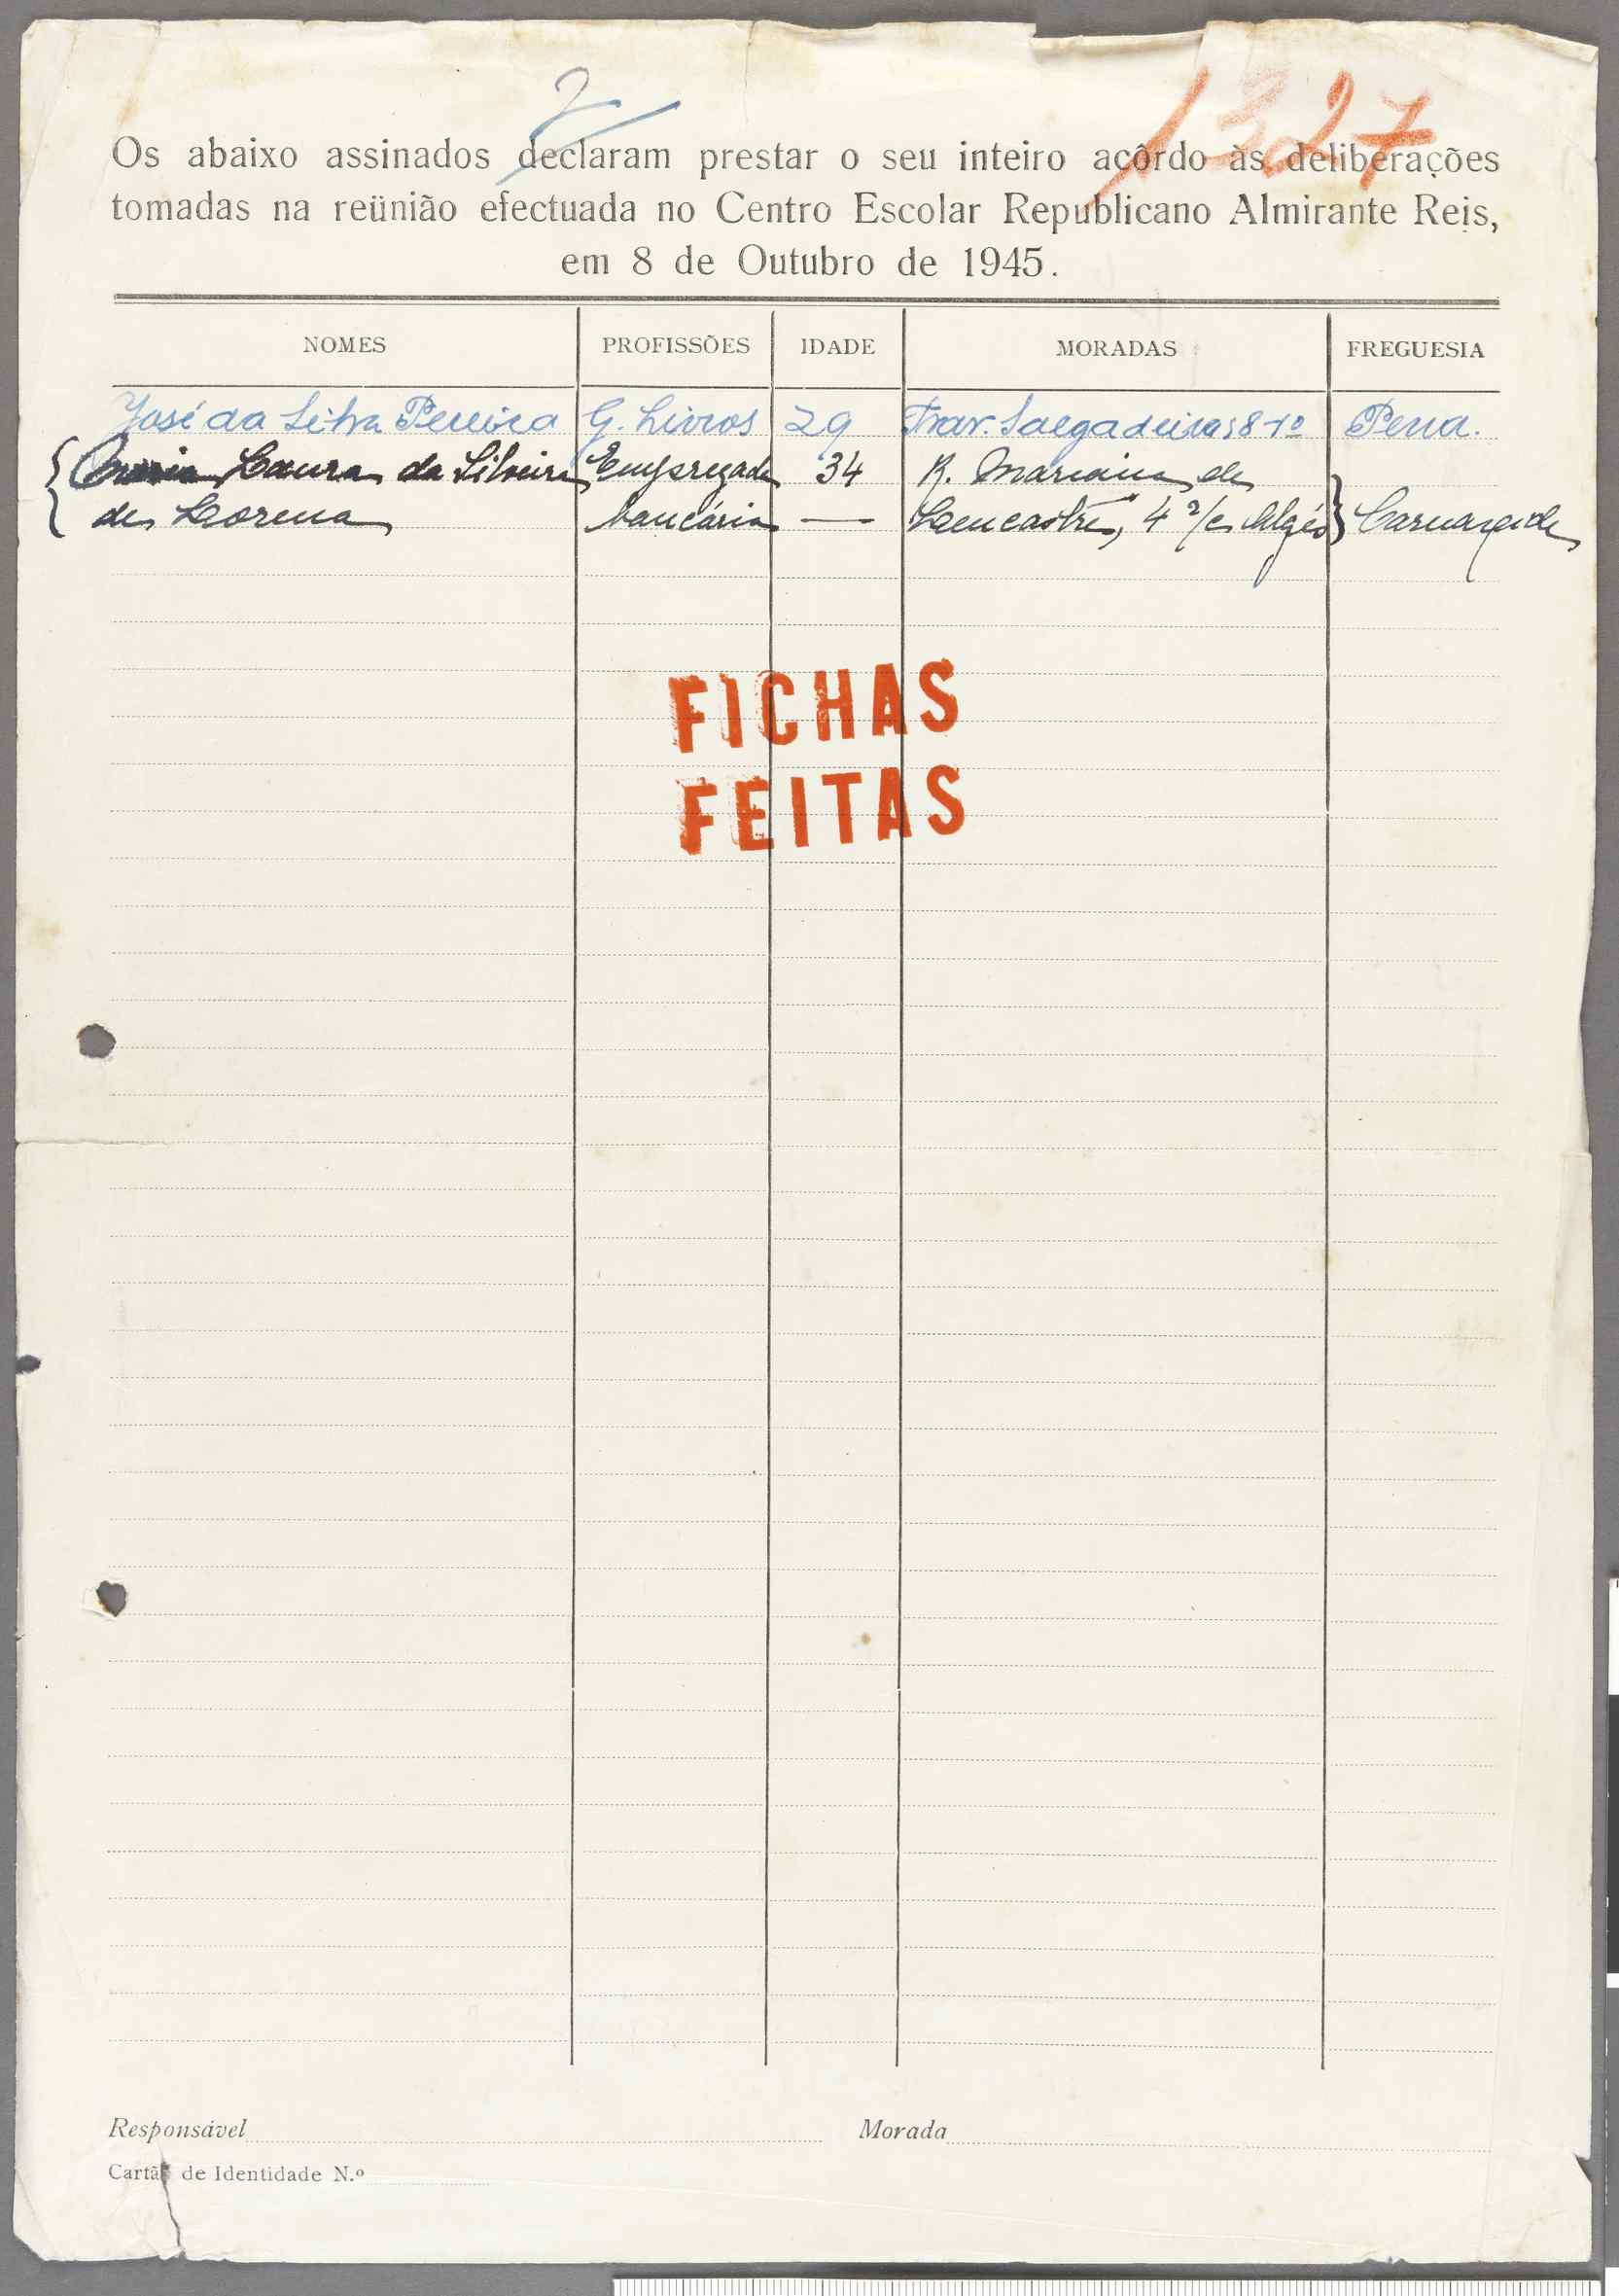 2
1327
Os abaixo assinados declaram prestar o seu inteiro acôrdo às deliberações
tomadas na reünião efectuada no Centro Escolar Republicano Almirante Reis,
em 8 de Outubro de 1945.
NOMES PROFISSÕES IDADE MORADAS FREGUESIA
José da Silva Pereira G. Livros 29 Trav. Salgadeiras 8-1º Pena.
Maria Laura da Silveira Empregada 34 R. Mariana de
de Lorena bancária — Lencastre, 4 r/c Algés Carnaxide
FICHAS
FEITAS
Responsável Morada
Cartão de Identidade N.º